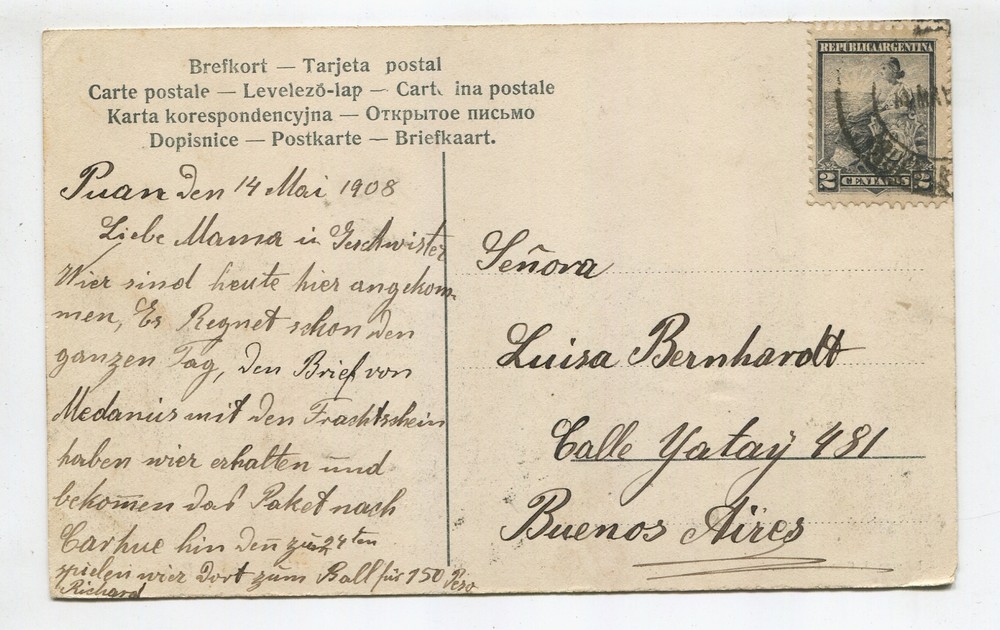 Brefkort — Tarjeta postal
Carte postale — Levelező-lap — Cart ina postale
Karta korespondencyjna — Открытое письмо
Dopisnice — Postkarte — Briefkaart.
REPÚBLICA ARGENTINA
2 CENTAVOS 2
Puan den 14 Mai 1908
Liebe Mama u Geschwister
Wier sind heute hier angekom-
men, Es Regnet schon den
ganzen Tag, den Brief von
Medanius mit den Frachtschein
haben wier erhalten und
bekom̄en das Paket nach
Carhue hin den̄ zum 24ten
spielen wier Dort zum Ball für 150 Peso
Richard
Señora
Luisa Bernhardt
Calle Yataÿ 481
Buenos Aires